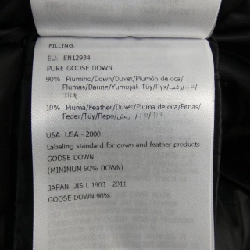 FILLING
EU: EN12934
PURE GOOSE DOWN
90% Piumino/Down/Duvet/Plumón de oca/
Flumas/Daune/Yumuşak Tüy/
10% Piuma/Feather/Duvet/Pluma de oca/Penas/
Feder/Tüy/Перо/
USA: USA - 2000
Labeling standard for down and feather products
GOOSE DOWN
(MINIMUN 90% DOWN)
JAPAN: JIS L 1903 - 2011
GOOSE DOWN 90%